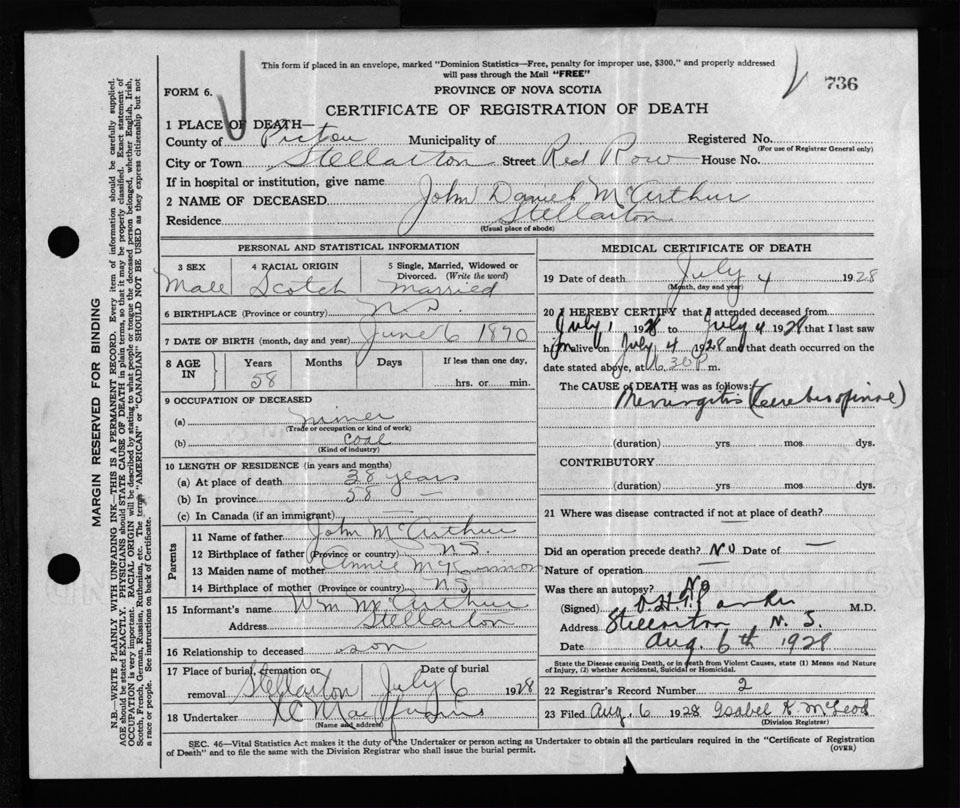 This form if placed in an envelope, marked "Dominion Statistics—Free, penalty for improper use, $300," and properly addressed
will pass through the Mail "FREE"
736
FORM 6.
PROVINCE OF NOVA SCOTIA
CERTIFICATE OF REGISTRATION OF DEATH
1 PLACE OF DEATH—
County of Pictou Municipality of Registered No.
(For use of Registrar General only)
City or Town Stellarton Street Red Row House No.
If in hospital or institution, give name
2 NAME OF DECEASED John Daniel McArthur
Residence Stellarton
(Usual place of abode)
PERSONAL AND STATISTICAL INFORMATION
3 SEX 4 RACIAL ORIGIN 5 Single, Married, Widowed or
Divorced. (Write the word)
Male Scotch Married
6 BIRTHPLACE (Province or country) N.S.
7 DATE OF BIRTH (month, day and year) June 6 1870
8 AGE IN Years Months Days If less than one day,
58 hrs. or min.
9 OCCUPATION OF DECEASED
(a) miner
(Trade or occupation or kind of work)
(b) coal
(Kind of industry)
10 LENGTH OF RESIDENCE (in years and months)
(a) At place of death 38 years
(b) In province 58 —
(c) In Canada (if an immigrant) —
Parents
11 Name of father John McArthur
12 Birthplace of father (Province or country) N.S.
13 Maiden name of mother Annie McKinnon
14 Birthplace of mother (Province or country) N.S.
15 Informant's name Wm McArthur
Address Stellarton
16 Relationship to deceased son
17 Place of burial, cremation or Date of burial
removal Stellarton July 6 1928
18 Undertaker
(Name and address)
MEDICAL CERTIFICATE OF DEATH
19 Date of death July 4 1928
(Month, day and year)
20 I HEREBY CERTIFY that I attended deceased from
July 1 1928 to July 4 1928 that I last saw
him alive on July 4 1928 and that death occurred on the
date stated above, at 30 P m.
The CAUSE OF DEATH was as follows:
Meningitis (Cerebrospinal)
(duration) yrs. mos. dys.
CONTRIBUTORY
(duration) yrs. mos. dys.
21 Where was disease contracted if not at place of death?
—
Did an operation precede death? No Date of —
Nature of operation —
Was there an autopsy? No
(Signed) M.D.
Address Stellarton N. S.
Date Aug. 6th 1928
State the Disease causing Death, or in death from Violent Causes, state (1) Means and Nature
of Injury, (2) whether Accidental, Suicidal or Homicidal.
22 Registrar's Record Number 2
23 Filed Aug. 6 1928 Isabel K. McLeod
(Division Registrar)
SEC. 46—Vital Statistics Act makes it the duty of the Undertaker or person acting as Undertaker to obtain all the particulars required in the "Certificate of Registration
of Death" and to file the same with the Division Registrar who shall issue the burial permit.
(OVER)
MARGIN RESERVED FOR BINDING
N.B.—WRITE PLAINLY WITH UNFADING INK—THIS IS A PERMANENT RECORD. Every item of information should be carefully supplied.
AGE should be stated EXACTLY. PHYSICIANS should STATE CAUSE OF DEATH in plain terms, so that it may be properly classified. Exact statement of
OCCUPATION is very important. RACIAL ORIGIN will be described by stating to what people or race the deceased person belonged, whether English, Irish,
Scotch, French, German, Russian, Ruthenian, etc. The terms "AMERICAN" or "CANADIAN" SHOULD NOT BE USED as they express citizenship but not
a race or people. See instructions on back of Certificate.